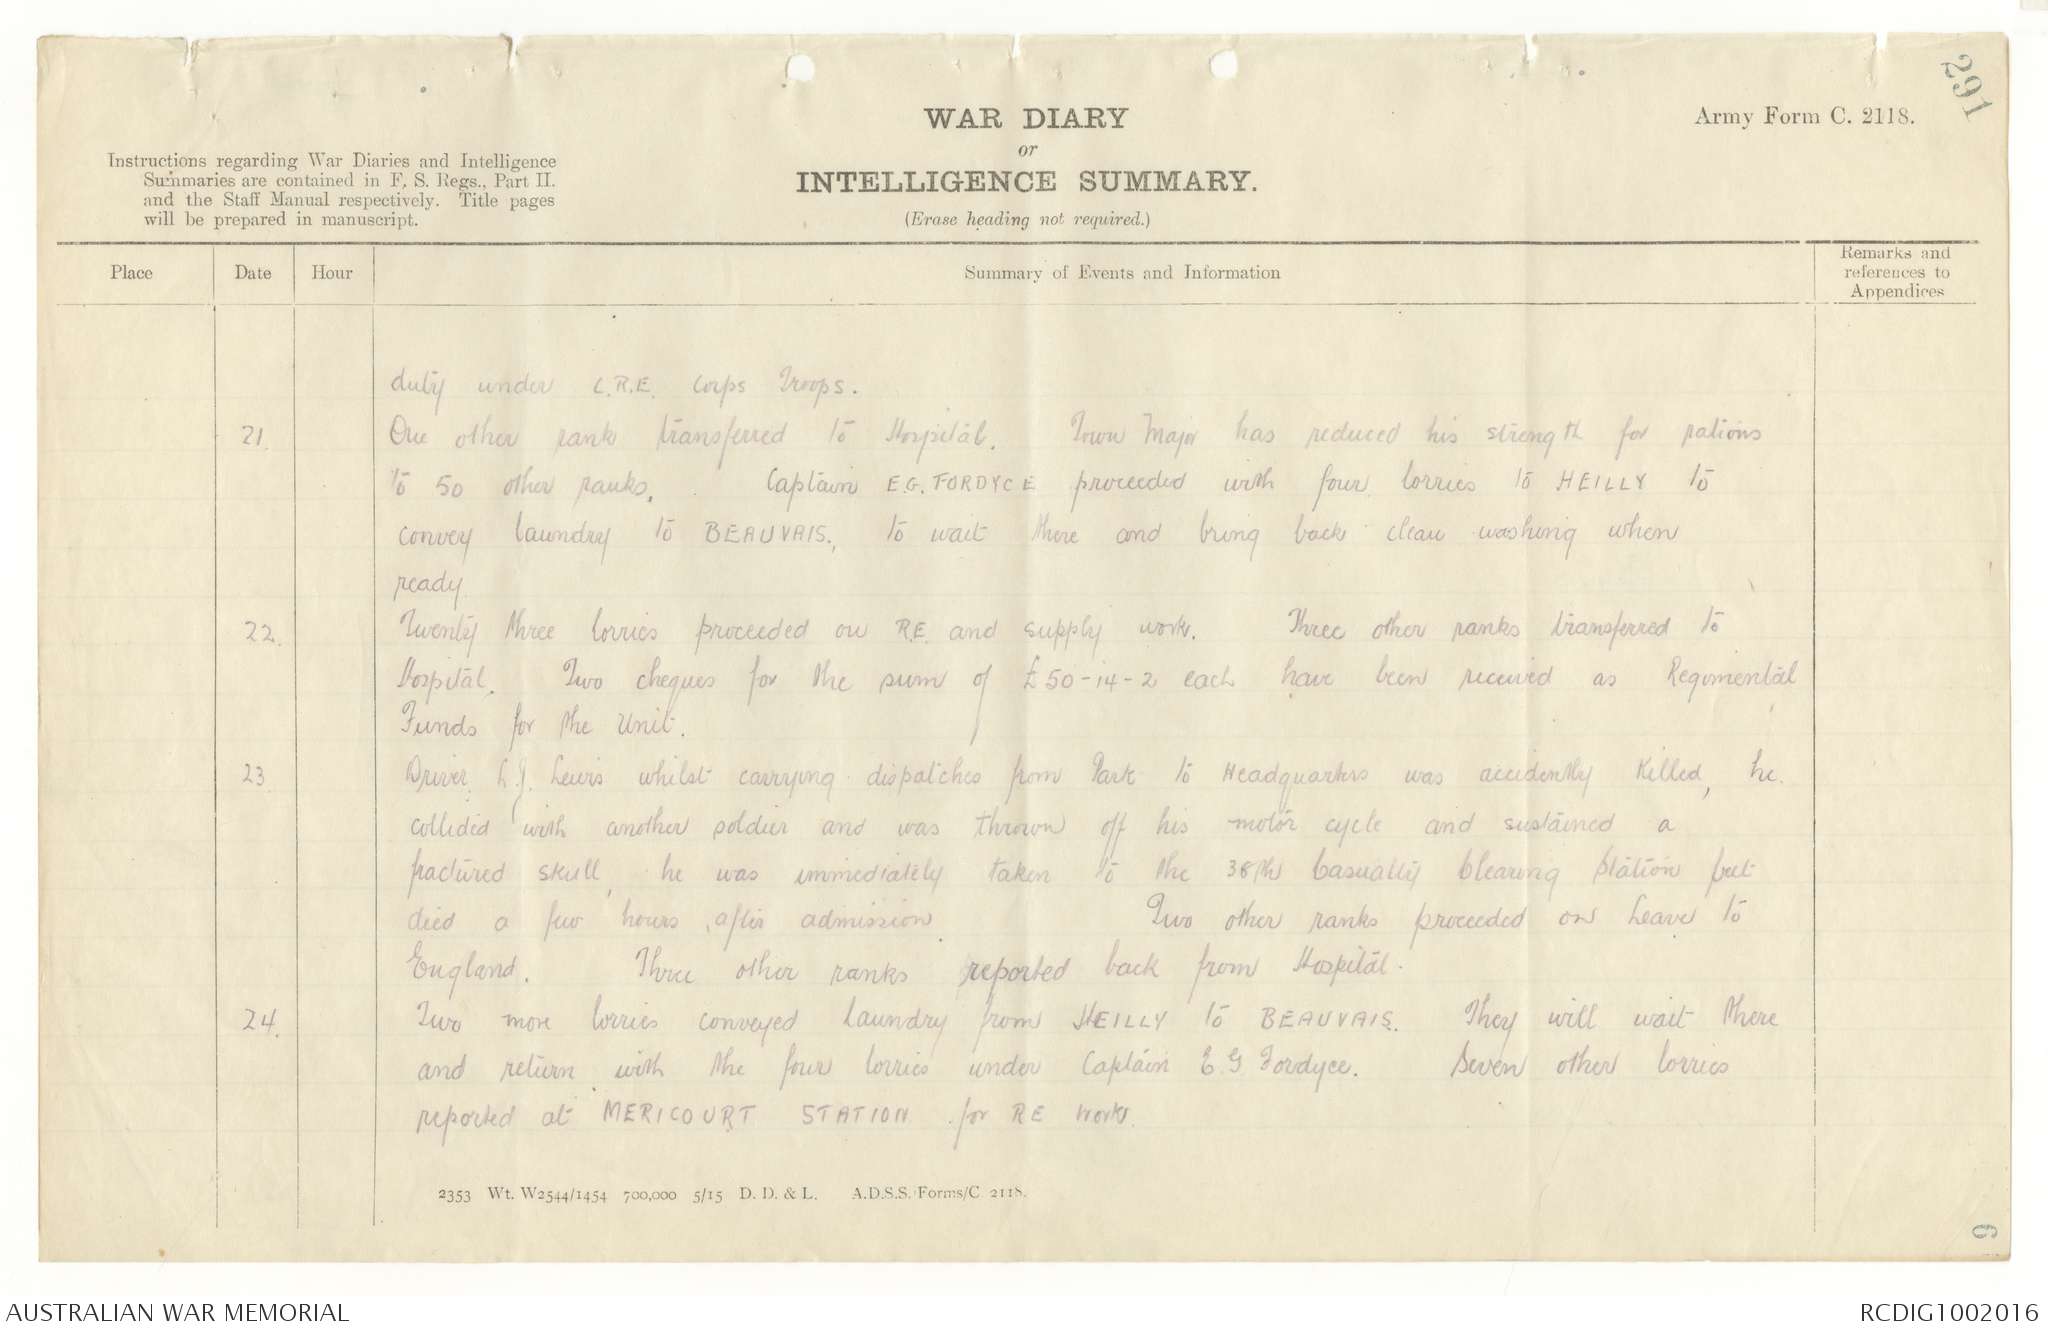 291
WAR DIARY
or
INTELLIGENCE SUMMARY.
(Erase heading not required.)
Army Form C. 2118.
Instructions regarding War Diaries and Intelligence
Summaries are contained in F. S. Regs., Part II.
and the Staff Manual respectively. Title pages
will be prepared in manuscript.
Place Date Hour Summary of Events and Information Remarks and references to Appendices
duty under C.R.E. Corps Troops.
21. One other rank transferred to Hospital. Town Major has reduced his strength for rations
to 50 other ranks. Captain E.G. FORDYCE proceeded with four lorries to HEILLY to
convey laundry to BEAUVAIS., to wait there and bring back clean washing when
ready
22. Twenty three lorries proceeded on R.E. and supply work. Three other ranks transferred to
Hospital. Two cheques for the sum of £50-14-2 each have been received as Regimental
Funds for the Unit.
23. Driver L.J. Lewis whilst carrying dispatches from Park to Headquarters was accidently Killed, he
collided with another soldier and was thrown off his motor cycle and sustained a
fractured skull, he was immediately taken to the 38th Casualty Clearing Station but
died a few hours after admission. Two other ranks proceeded on Leave to
England. Three other ranks reported back from Hospital.
24. Two more lorries conveyed Laundry from HEILLY to BEAUVAIS. They will wait there
and return with the four lorries under Captain E G Fordyce. Seven other lorries
reported at MERICOURT STATION for R E Work.
2353 Wt. W2544/1454 700,000 5/15 D. D. & L. A.D.S.S./Forms/C. 2118.
6
AUSTRALIAN WAR MEMORIAL
RCDIG1002016